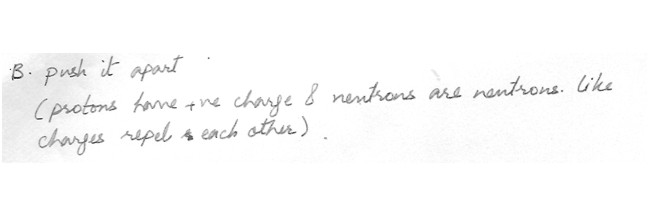 B. push it apart
(protons have +ve charge & neutrons are neutrons. like
charges repel each other).